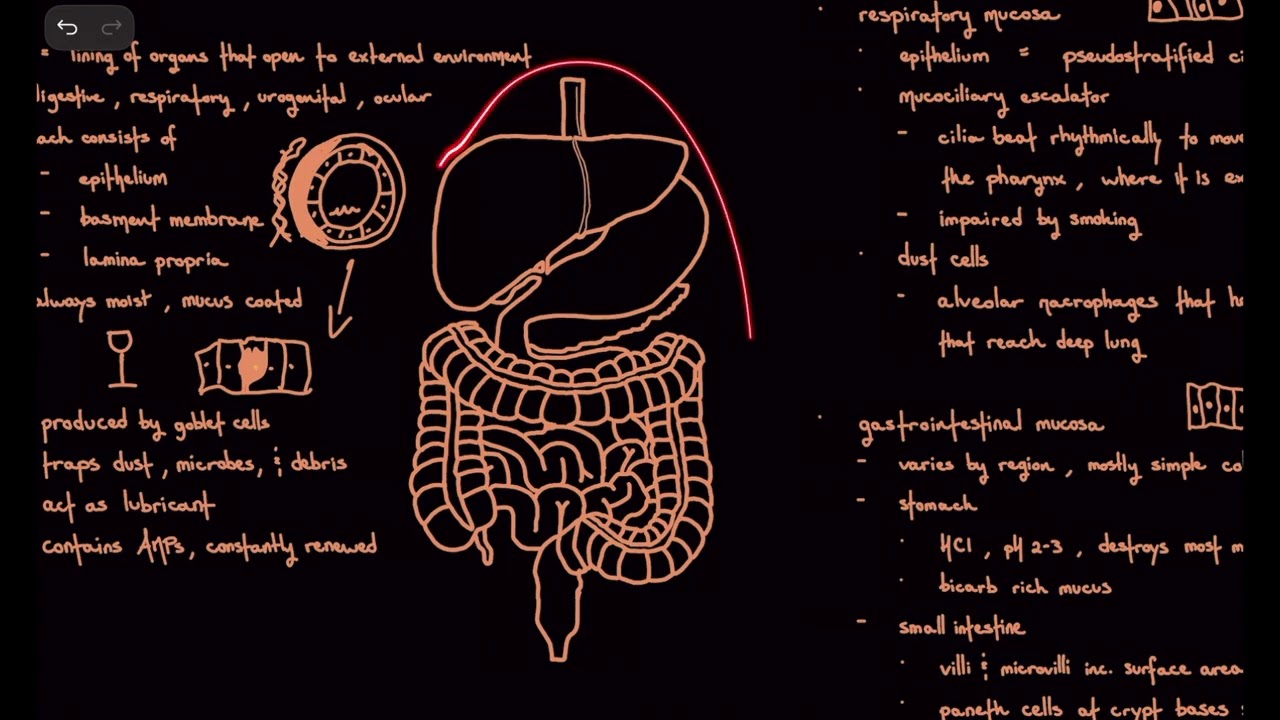 = lining of organs that open to external environment
digestive, respiratory, urogenital, ocular
each consists of
- epithelium
- basment membrane
- lamina propria
always moist, mucus coated
produced by goblet cells
traps dust, microbes, & debris
act as lubricant
contains AMPs, constantly renewed
· respiratory mucosa
· epithelium = pseudostratified ci
· mucociliary escalator
- cilia beat rhythmically to mov
the pharynx, where it is ex
- impaired by smoking
· dust cells
- alveolar macrophages that h
that reach deep lung
· gastrointestinal mucosa
- varies by region, mostly simple co
- stomach
· HCl, pH 2-3, destroys most m
· bicarb rich mucus
- small intestine
· villi & microvilli inc. surface area
· paneth cells at crypt bases s